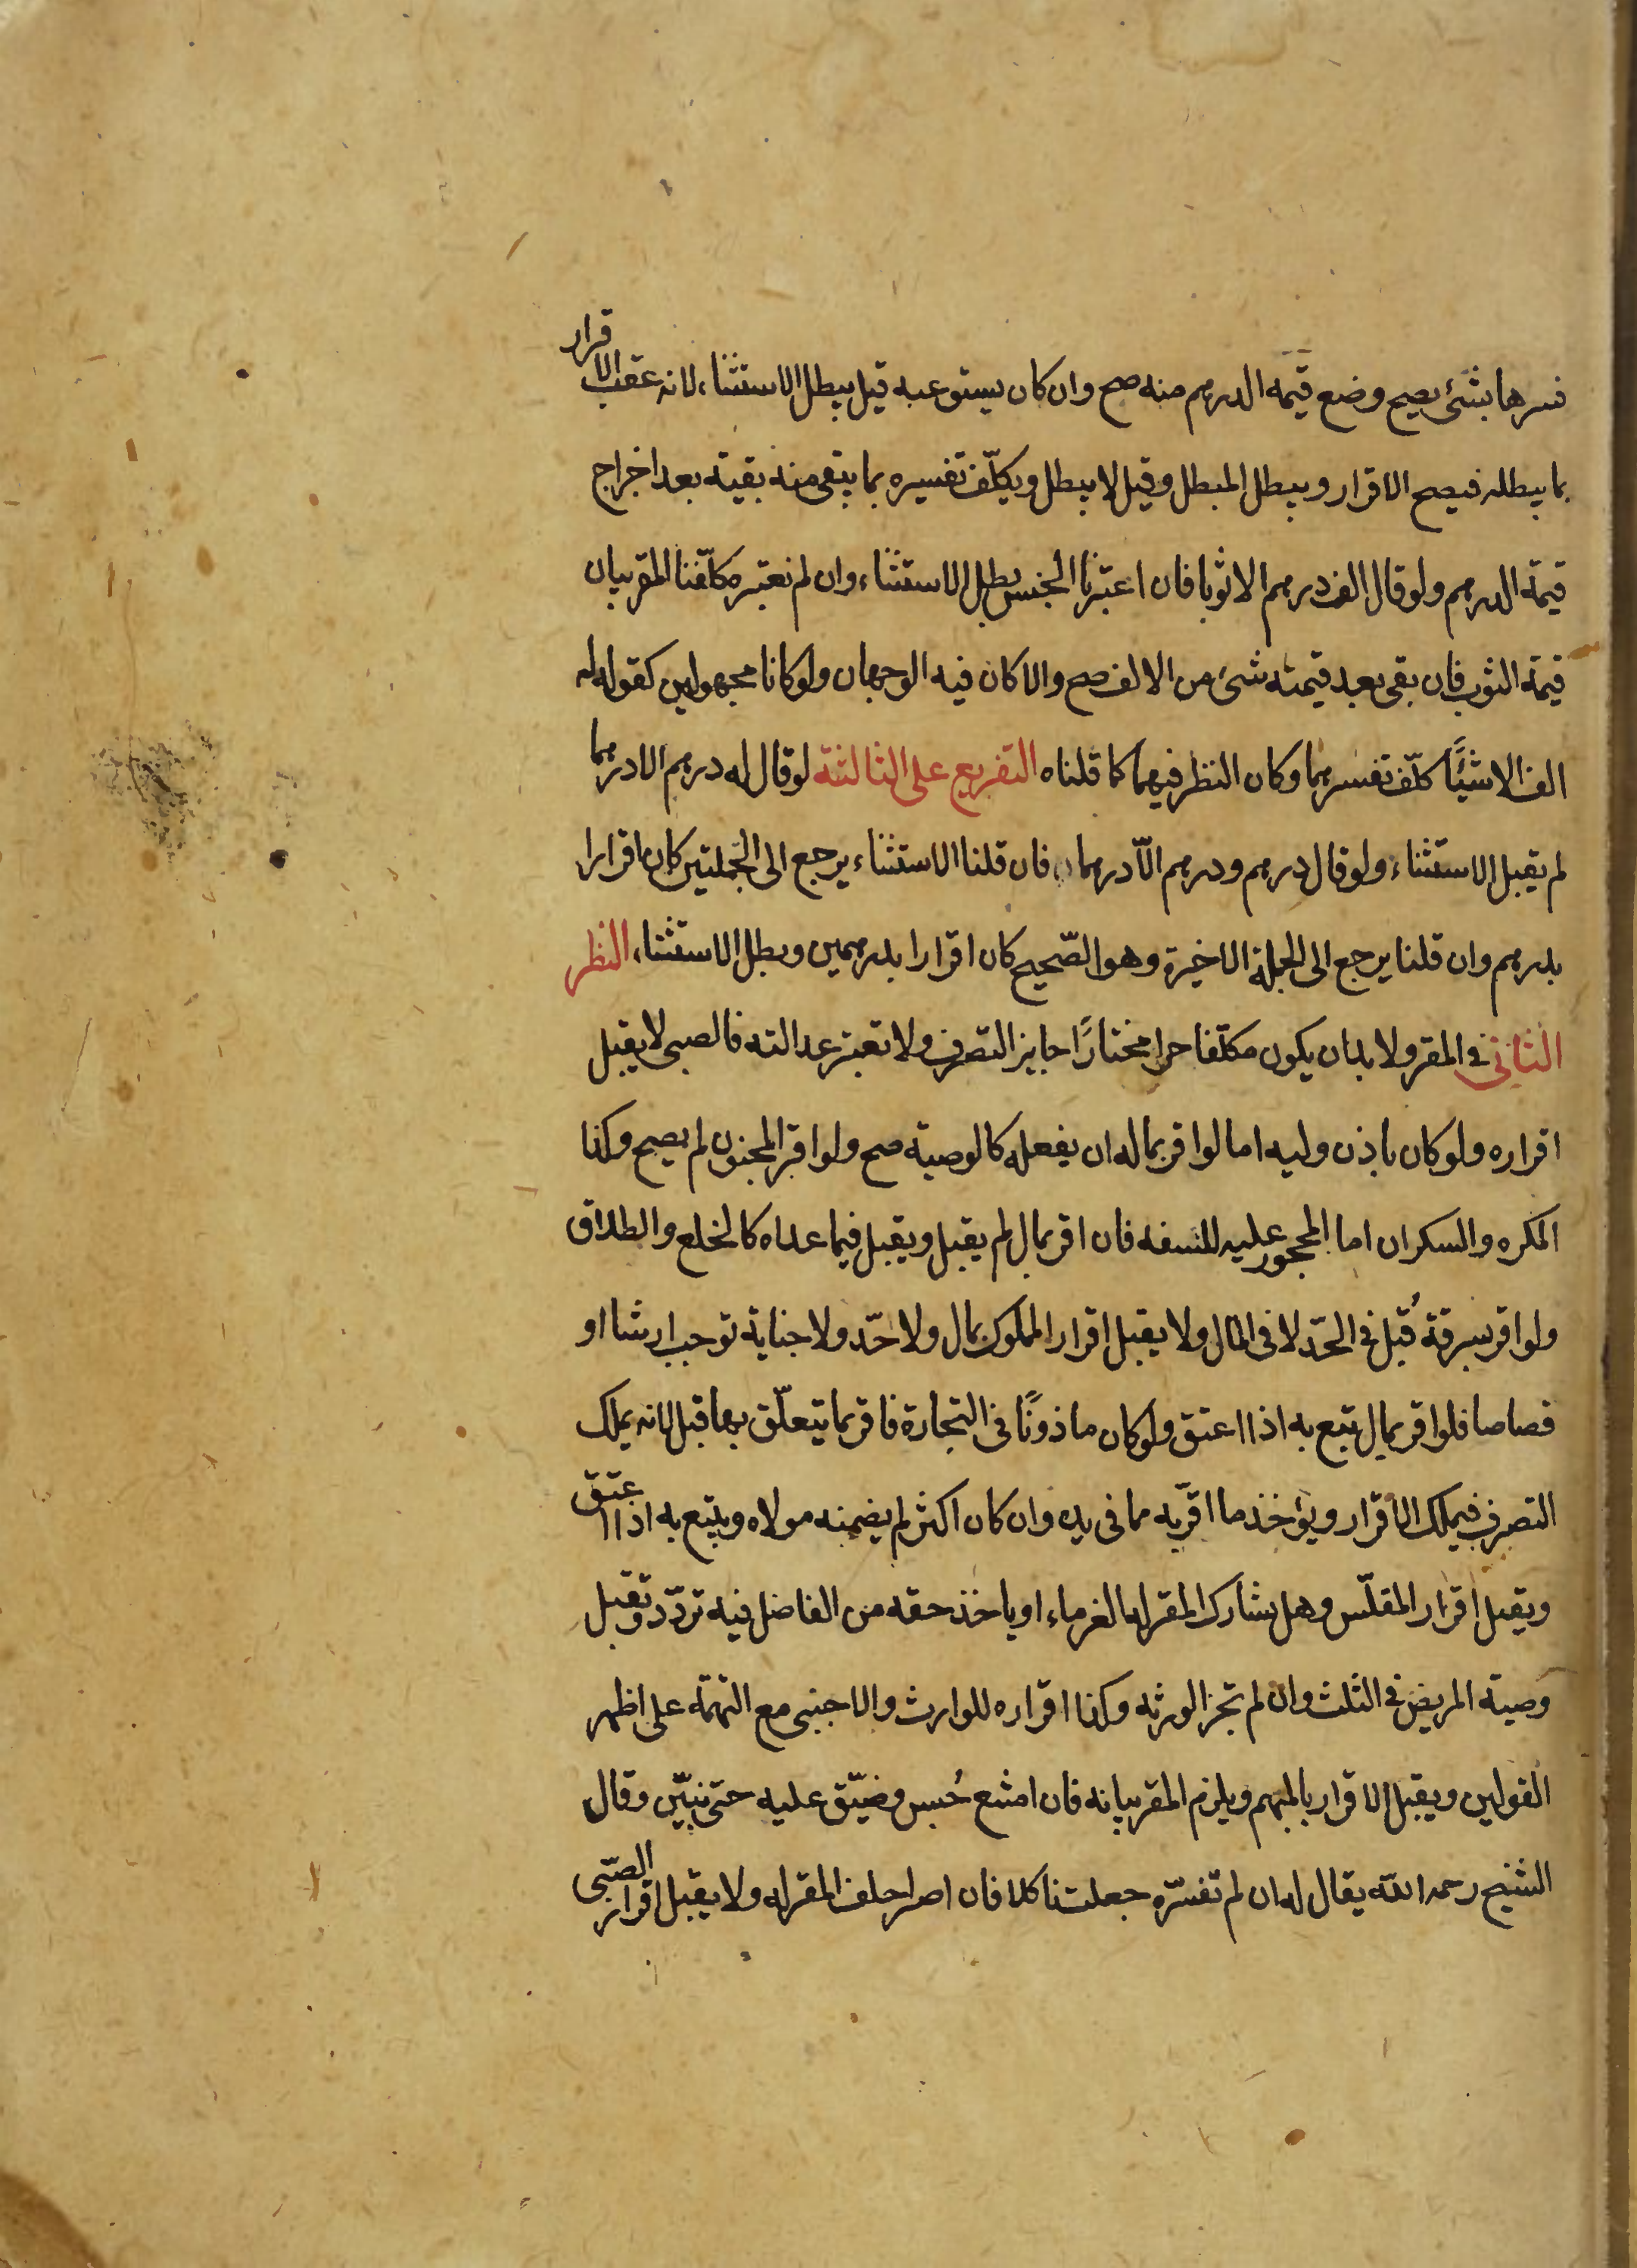 فسرها بشئ يصح وضع قيمة الدرهم منه صح وان كان يستوعبه قيل يبطل الاستثناء لانه عقب الاقرار
بما يبطله فيصح الاقرار ويبطل المبطل وقيل لا يبطل ويكلّف تفسيره بما يبقى منه بقية بعد اخراج
قيمة الدرهم ولو قال الف درهم الا ثوبا فان اعتبرنا الجنس بطل الاستثناء وان لم نعتبره كلّفنا المقر بيان
قيمة الثوب فان بقى بعد قيمته شئ من الالف صح والا كان فيه الوجهان ولو كانا مجهولين كقوله له
الف الا شيئًا كلّف تفسيرهما وكان النظر فيهما كما قلناه التفريع على الثالثة لو قال له درهم الا درهما
لم يقبل الاستثناء ولو قال درهم ودرهم الّا درهما فان قلنا الاستثناء يرجع الى الجملتين كان اقرارا
بدرهم وان قلنا يرجع الى الجملة الاخيرة وهو الصّحيح كان اقرارا بدرهمين وبطل الاستثناء النظر
الثانى فى المقر ولا بد ان يكون مكلّفا حرا مختارًا جايز التصرف ولا تعتبر عدالته فالصبى لا يقبل
اقراره ولو كان باذن وليه اما لو اقر بما له ان يفعله كالوصية صح ولو اقر المجنون لم يصح وكذا
المكره والسكران اما المحجور عليه للسفه فان اقر بمال لم يقبل ويقبل فيما عداه كالخلع والطلاق
ولو اقر بسرقة قُبل فى الحّد لا فى المال ولا يقبل اقرار المملوك بمال ولا حّد ولا جناية توجب ارشا او
قصاصا فلو اقر بمال يتبع به اذا اعتق ولو كان ماذونًا فى التجارة فاقر بما يتعلّق بها قبل لانه يملك
التصرف فيملك الاقرار ويؤخذ ما اقرّ به مما فى يده وان كان اكثر لم يضمنه مولاه ويتبع به اذا اعتق
ويقبل اقرار المفلّس وهل يشارك المقر له الغرماء او ياخذ حقه من الفاضل فيه تردّد وتقبل
وصية المريض فى الثلث وان لم تجز الورثه وكذا اقراره للوارث والاجنبى مع التهمة على اظهر
القولين ويقبل الاقرار بالمبهم ويلزم المقر بيانه فان امتنع حُبس وضيّق عليه حتى يبيّن وقال
الشيخ رحمه الله يقال له ان لم تفسّره جعلت ناكلا فان اصر احلف المقر له ولا يقبل اقرار الصّبى